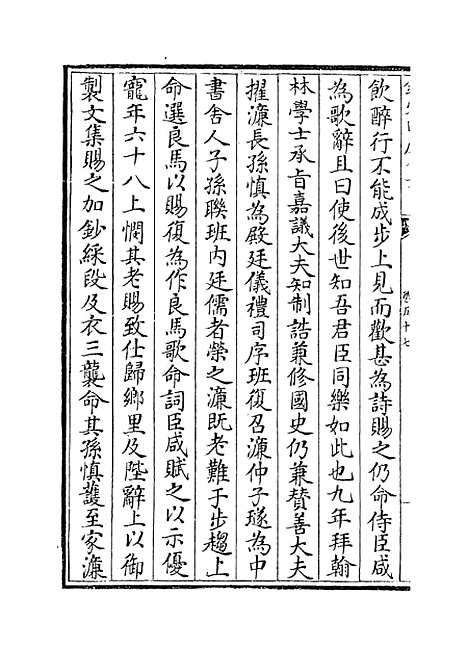 飲醉行不能成步上見而歡甚為詩賜之仍命侍臣咸
為歌辭且曰使後世知吾君臣同樂如此也九年拜翰
林學士承旨嘉議大夫知制誥兼修國史仍兼贊善大夫
擢濂長孫慎為殿廷儀禮司序班復召濂仲子璲為中
書舍人子孫聯班内廷儒者榮之濂既老難于步趨上
命選良馬以賜復為作良馬歌命詞臣咸賦之以示優
寵年六十八上憫其老賜致仕歸鄉里及陛辭上以御
製文集賜之加鈔綵段及衣三襲命其孫慎護至家濂